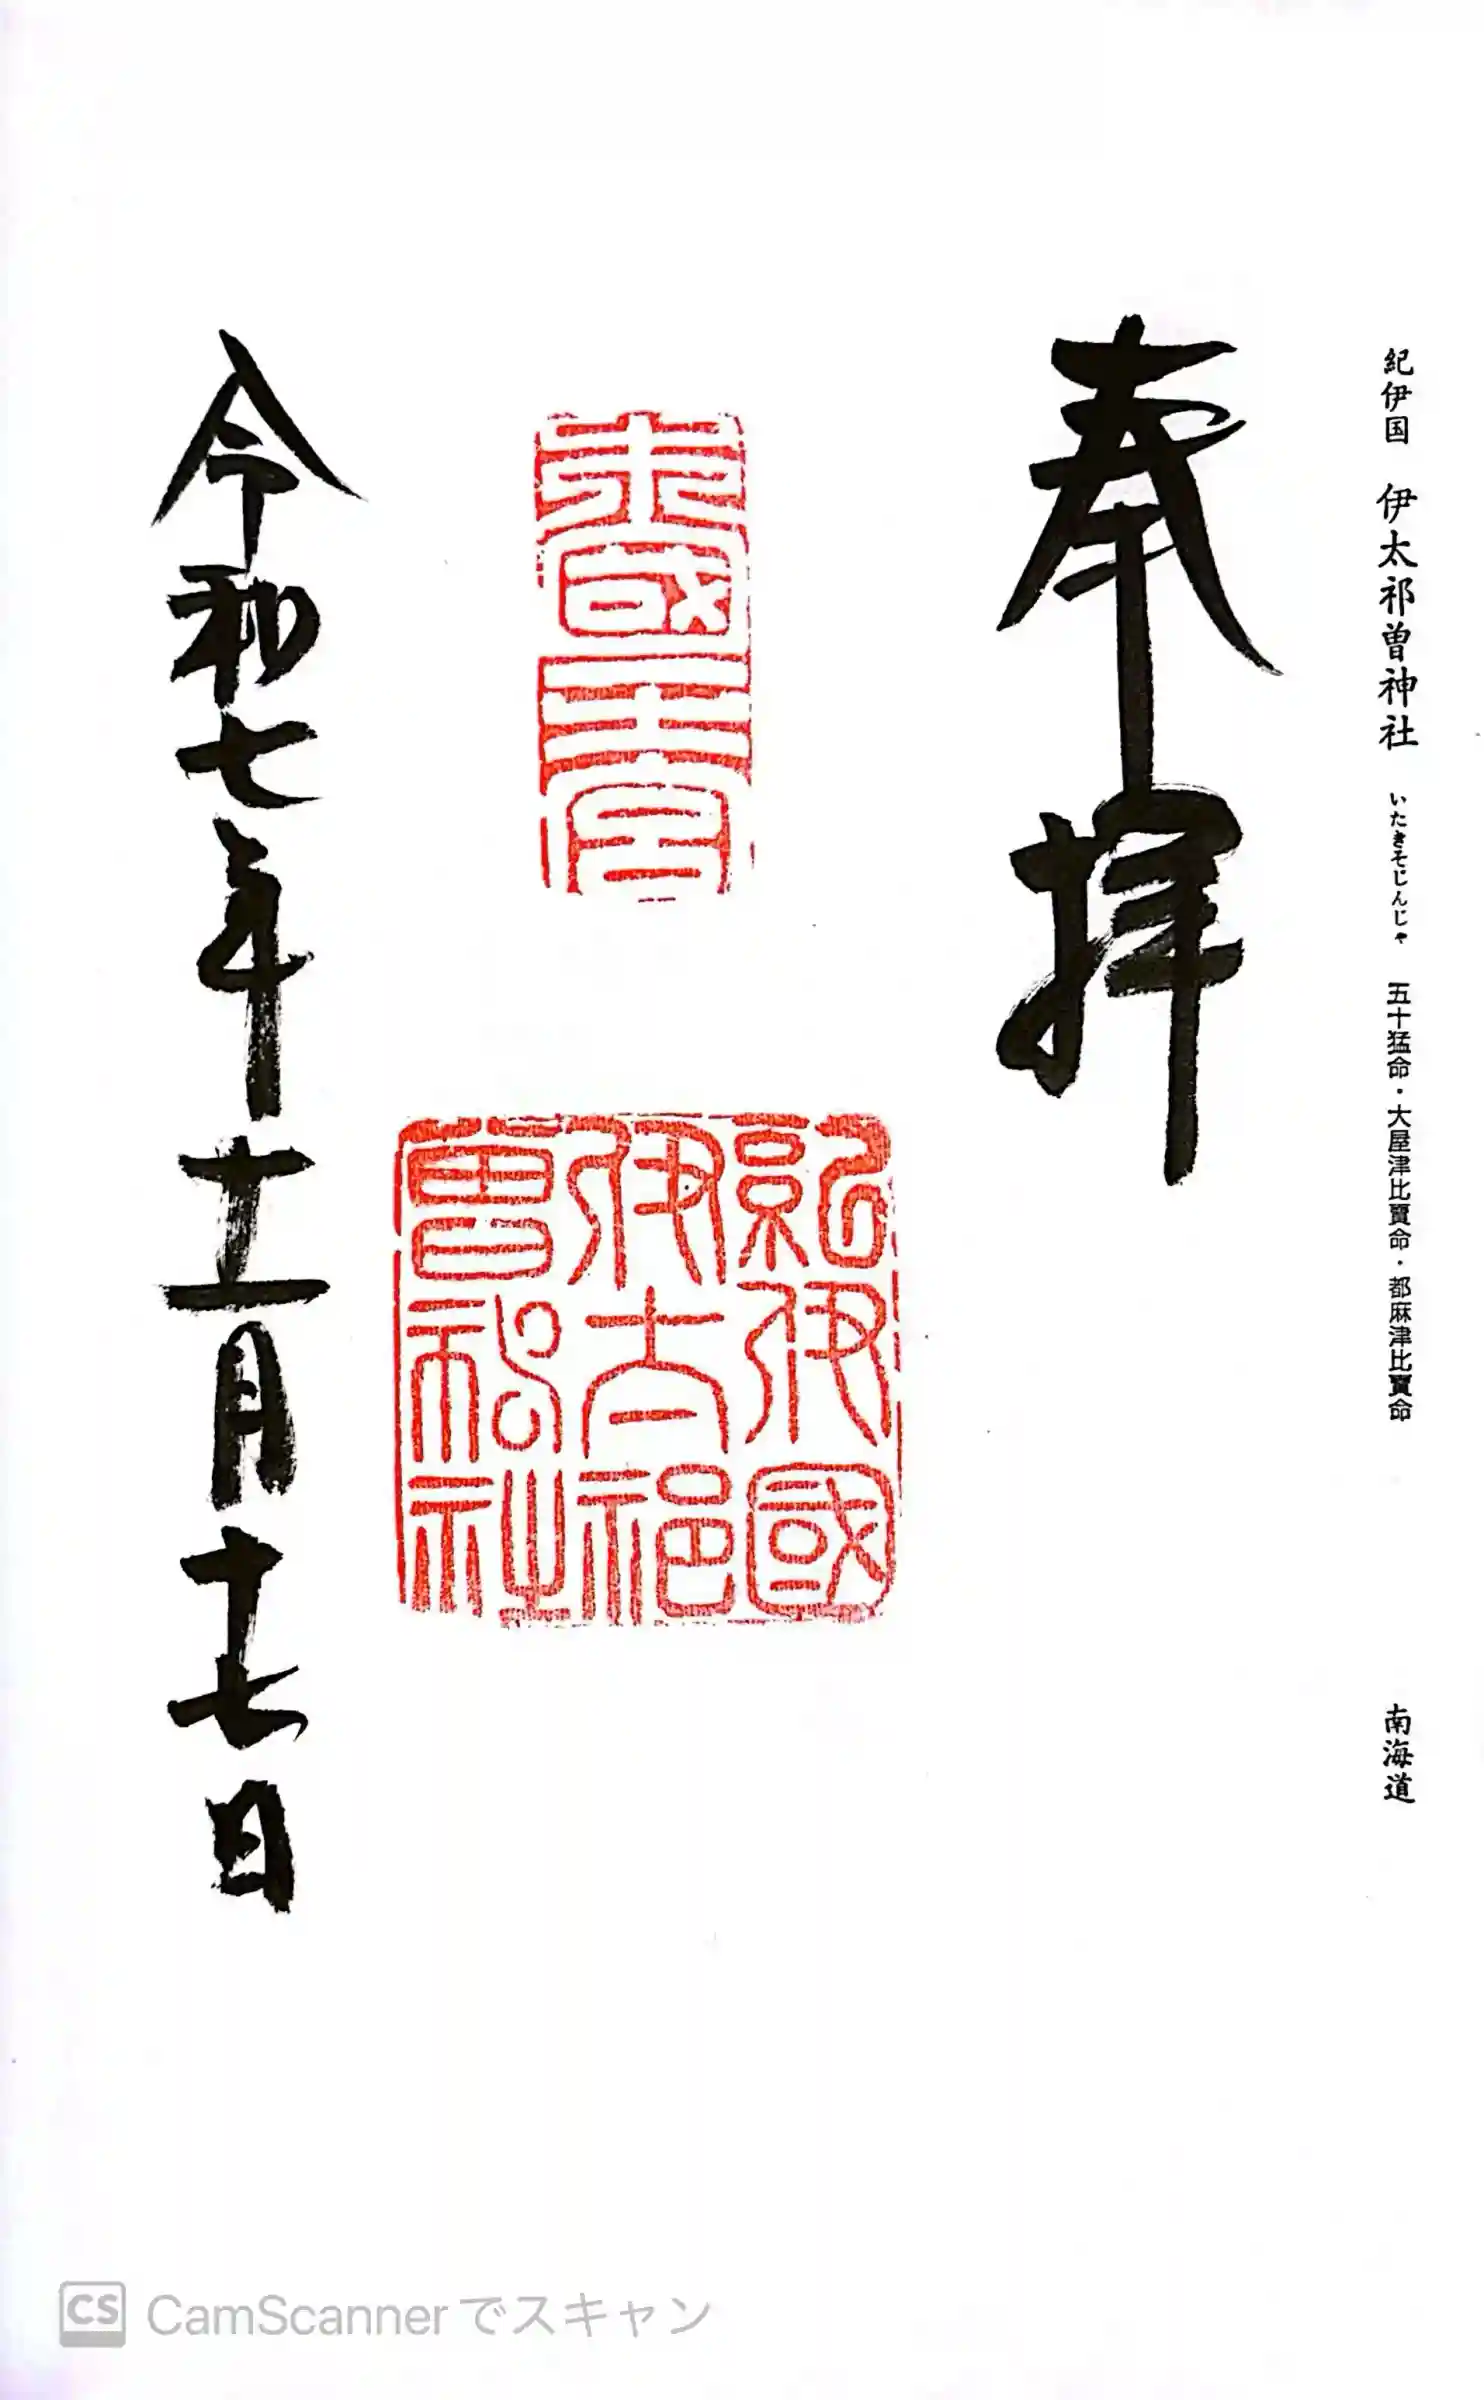 紀伊国 伊太祁曽神社 いたきそじんじゃ 五十猛命・大屋津比賣命・都麻津比賣命 南海道
奉拝
紀伊國
伊太祁
曾神社
令和七年十一月十七日
CS CamScannerでスキャン